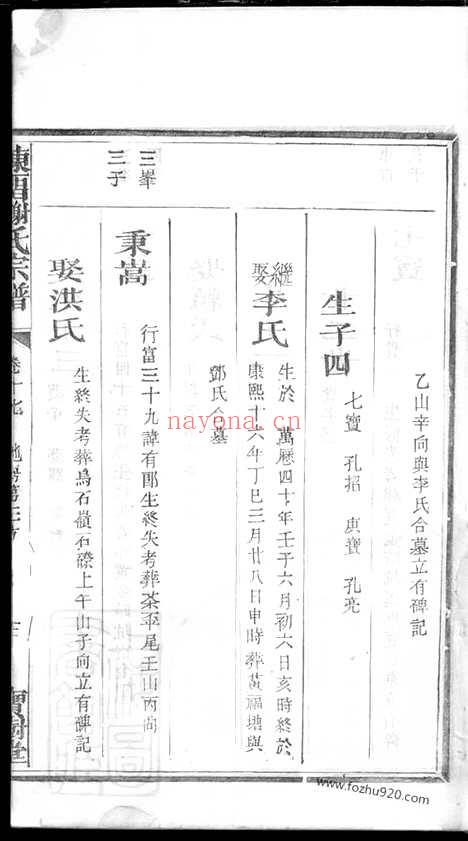 乙山辛向與李氏合墓立有碑記
生子四
七寶 孔招 庚寶 孔亮
繼娶李氏
生於萬曆四十年壬子六月初六日亥時終於
康熙十六年丁巳三月廿八日申時葬黃福塘與
鄧氏合墓
三峯
三子
秉嵩
行富三十九諱有郎生終失考葬茶平尾壬山丙向
娶洪氏
生終失考葬烏石嶺石磜上午山子向立有碑記
謝氏宗譜
卷十七
寶樹堂
nayona.cn
www.fozhu920.com